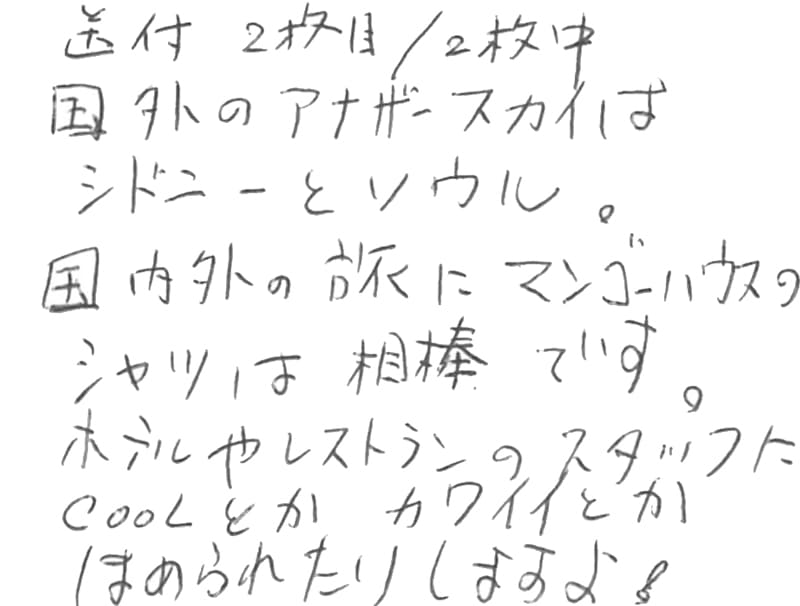 送付 2枚目/2枚中
国外のアナザースカイは
シドニーとソウル。
国内外の旅にマンゴーハウスの
シャツは相棒です。
ホテルやレストランのスタッフに
COOLとか カワイイとか
ほめられたりしますよ!